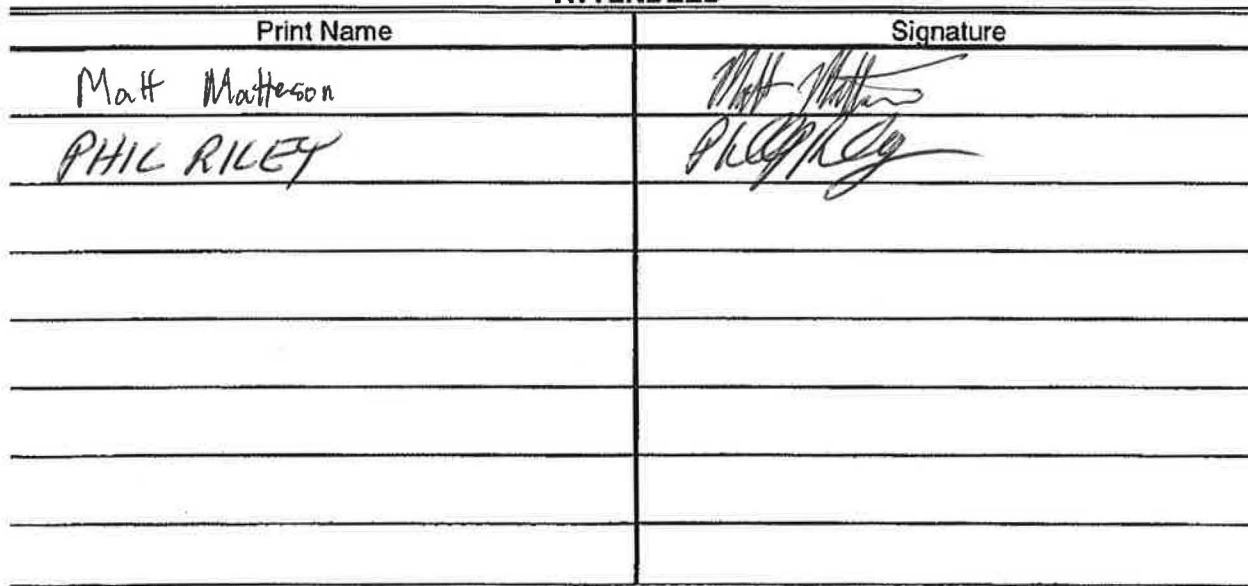 ATTENDEES
Print Name Signature
Matt Matteson Matt Matteson
PHIL RILEY